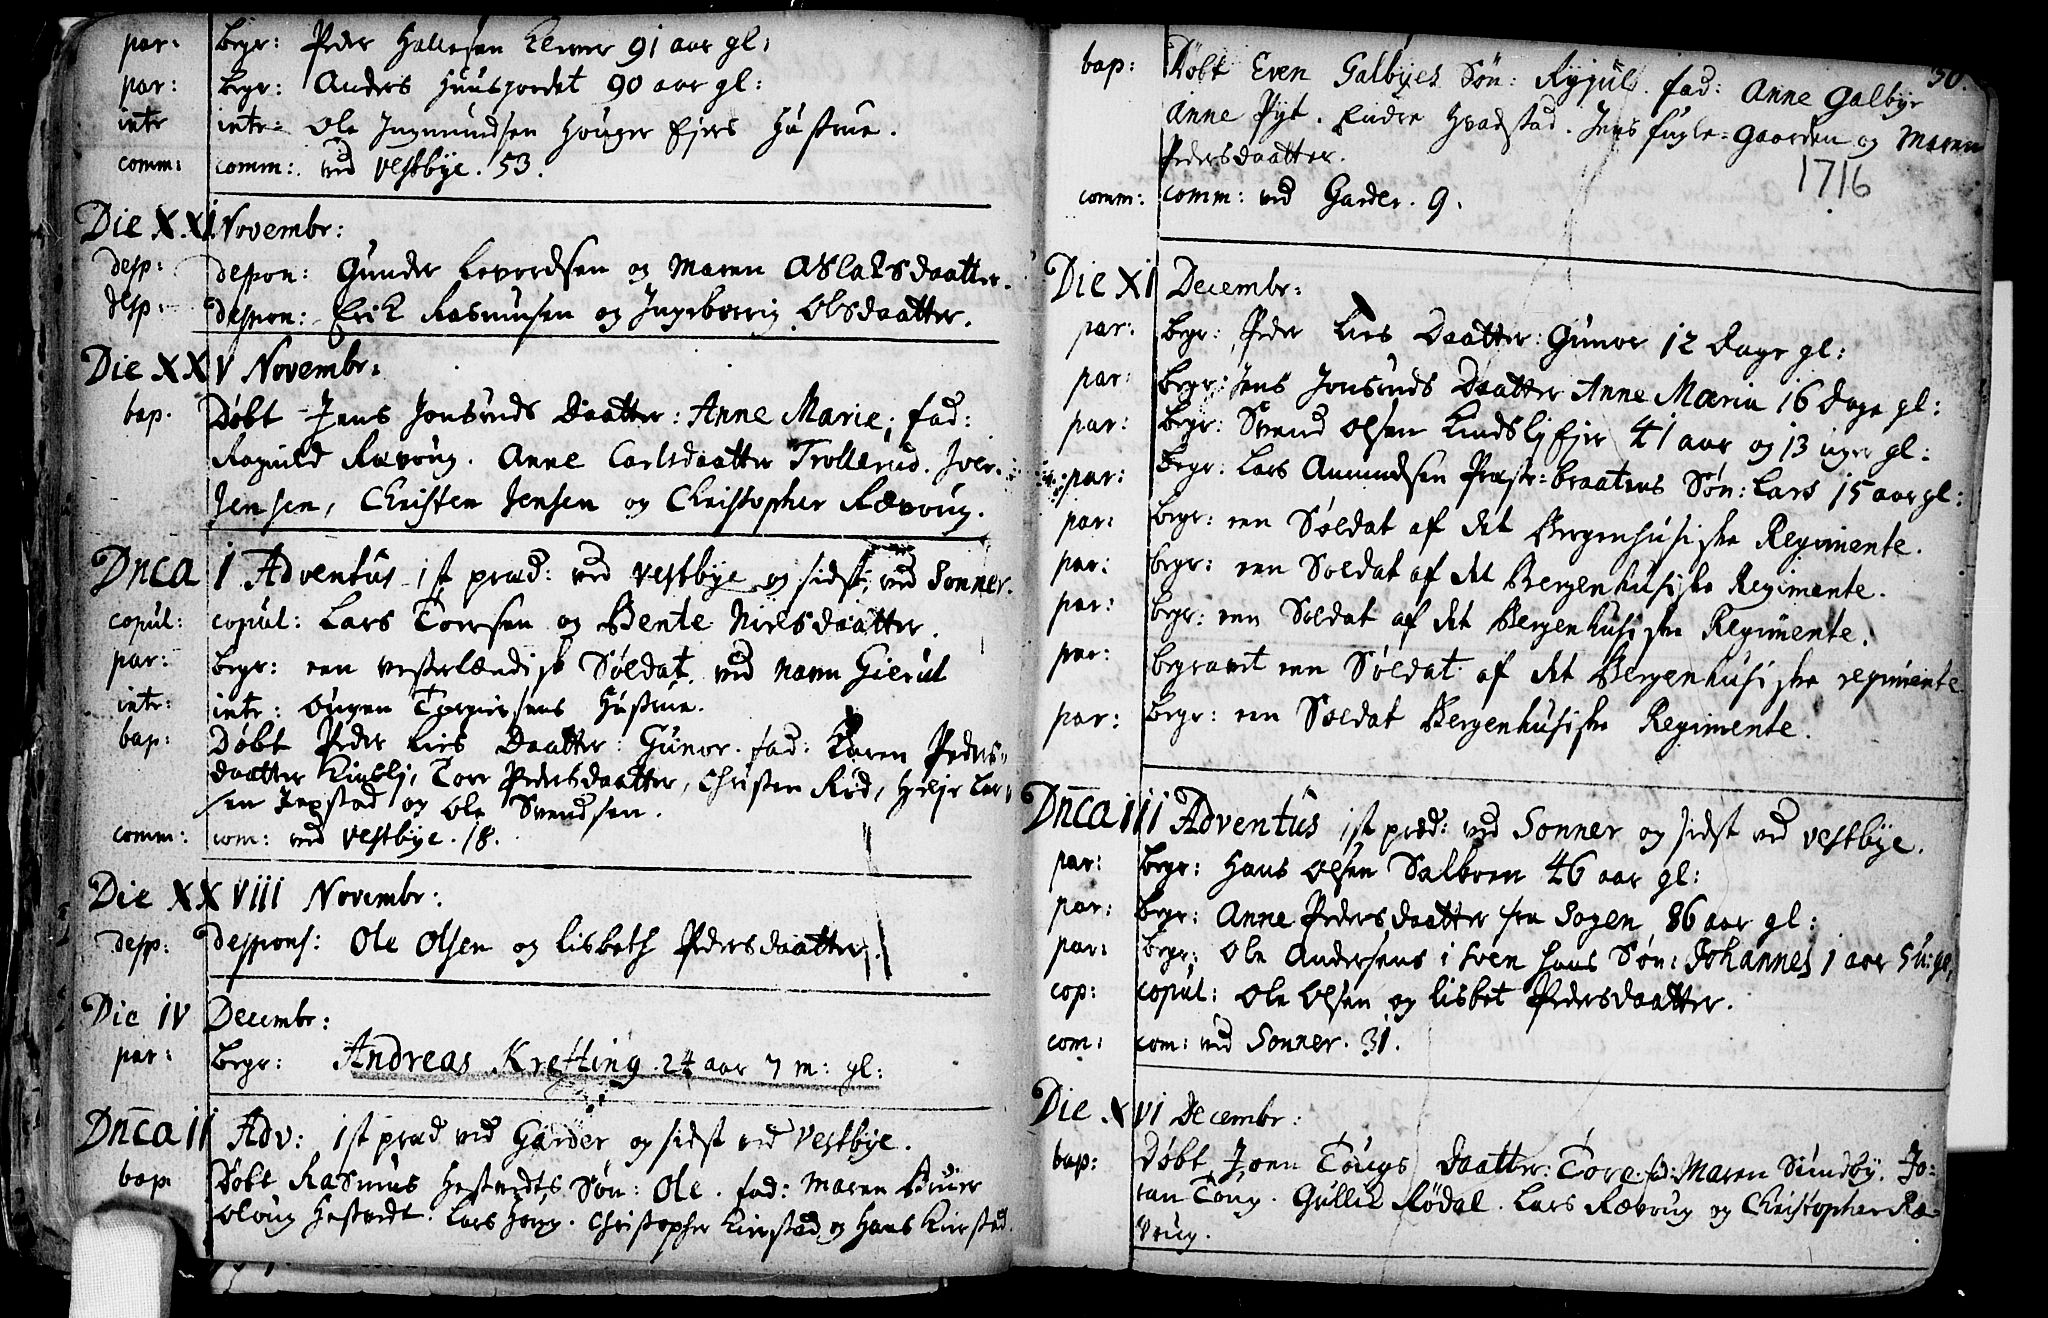 par: begr: Peder Hallesen Klever 91 aar gl:
par: begr: Anders Huusjordet 90 aar gl:
intr intr: Ole Ingmundsen Houger Ejers Hustrue.
comm: comm: ved Vestbye. 53.
Die XXI Novembr:
desp: despon: Gunder Levordsen og Maren Aslaksdaatter.
desp: despon: Erik Rasmusen og Ingeborrig Olsdaatter.
Die XXV Novembr:
bap. Døbt Jens Jonsruds Daatter: Anne Marie; fad:
Ragnild Rævoug. Anne Carlsdaatter Trollerud. Iver
Jensen, Christen Jensen og Christopher Rævoug.
Dnca I Adventus 1st præd: ved Vestbye og sidst: ved Sonner.
copul: copul: Lars Torrsen og Bente Nielsdaatter.
par: begr: een vesterlændisk Soldat, ved navn Gierul
intr: intr: Ougen Torgiersens Hustrue.
bap: Døbt Peder Lies Daatter: Gunor. fad: Karen Peders-
daatter Kindlj, Torr Pedersdaatter, Christen Rød, Helje Lar-
sen Jepstad og Ole Svendsen.
comm: com: ved Vestbye. 18.
Die XXVIII Novembr:
desp: despons: Ole Olsen og Lisbeth Pedersdaatter.
Die IV Decembr:
par: begr: Andreas Krefting. 24 aar 7 m: gl:
Dnca II Adv: 1st præd ved Garder og sidst ved Vestbye.
bap Døbt Rasmus Hestvedts Søn: Ole. fad: Maren Bruer
Oloug Hestvedt. Lars Horg. Christopher Kirrstad og Hans Kirrstad.
50.
bap: Døbt Even Galbyes Søn: Rejul. fad: Anne Galbye
Anne Pyt. Endre Hvadstad. Jens Fugle-Gaarden og Maren
Pedersdaatter.
1716
comm: comm: ved Garder. 9.
Die XI Decembr:
par: begr: Peder Lies Daatter: Gunor 12 dage gl:
par: begr: Jens Jonsruds Daatter Anne Maria 16 dage gl:
par: begr: Svend Olsen Kindslj Ejer 41 aar og 13 uger gl:
par: begr: Lars Amundsen Præste-braatens Søn: Lars 15 aar gl:
par: begr: een Soldat af det Bergenhusiske Regimente.
par: begr: een Soldat af det Bergenhusiske Regimente.
par: begr: een Soldat af det Bergenhusiske Regimente.
par: begravet een Soldat af det Bergenhusiske regimente
par: begr: een Soldat Bergenhusiske Regimente.
Dnca III Adventus 1st præd: ved Sonner og sidst ved Vestbye.
par: begr: Hans Olsen Salbroen 46 aar gl:
par: begr: Anne Pedersdaatter fra Sogen 86 aar gl:
par: begr: Ole Andersens i Sven hans Søn: Johannes 1 aar 5 u: gl,
cop: copul: Ole Olsen og Lisbet Pedersdaatter.
com: com: ved Sonner. 31.
Die XVI Decembr:
bap: Døbt Joen Tougs Daatter: Tore. fd: Maren Sundby. Jo-
ran Toug. Gullik Rødal. Lars Rævoug og Christopher Ræ-
voug.